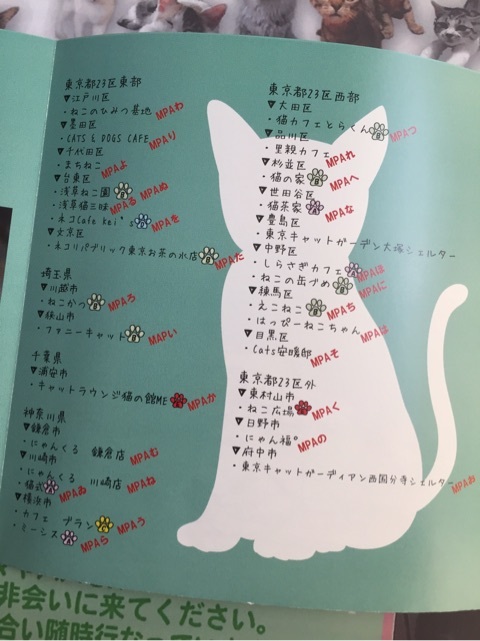 東京都23区東部
▼江戸川区
・ねこのひみつ基地 MPAわ
▼墨田区
・CATS & DOGS CAFE MPAり
▼千代田区
・まちねこ MPAよ
▼台東区
・浅草ねこ園 MPAぬ
・浅草猫三昧 MPAる
・ネコCafe kei's MPAを
▼文京区
・ネコリパブリック東京お茶の水店 MPAだ
埼玉県
▼川越市
・ねこかつ MPAろ
▼狭山市
・ファニーキャット MAPい
千葉県
▼浦安市
・キャットラウンジ猫の館ME MPAか
神奈川県
▼鎌倉市
・にゃんくる 鎌倉店 MPAむ
▼川崎市
・にゃんくる 川崎店 MPAね
・猫式 MPAぬ
▼横浜市
・カフェ ブラン MPAう
・ミーシス MPAら
東京都23区西部
▼大田区
・猫カフェとらくん MPAつ
▼品川区
・里親カフェ MPAれ
▼杉並区
・猫の家 MPAへ
▼世田谷区
・猫茶家 MPAな
▼豊島区
・東京キャットガーデン大塚シェルター
▼中野区
・しらさぎカフェ MPAほ
・ねこの缶づめ MPAに
▼練馬区
・えこねこ MPAち
・はっぴーねこちゃん MPAは
▼目黒区
・Cats安暖邸 MPAそ
東京都23区外
▼東村山市
・ねこ広場 MPAく
▼日野市
・にゃん福。 MPAの
▼府中市
・東京キャットガーディアン西国分寺シェルター MPAお
非会いに来てください。
合い随時行な